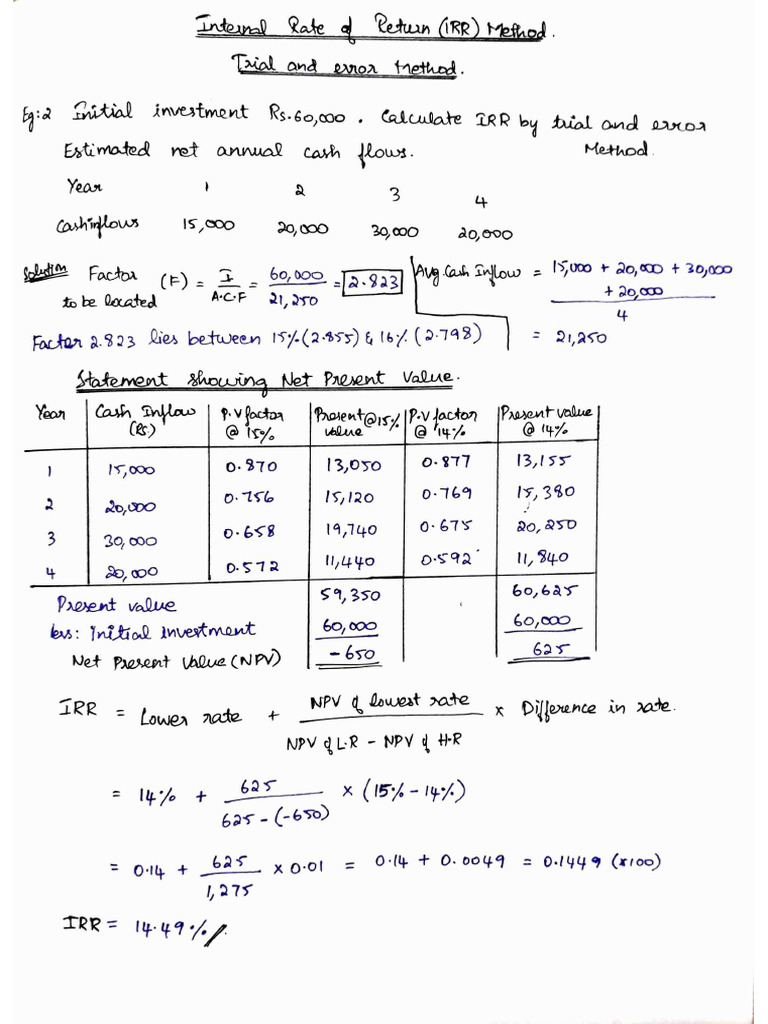 Internal Rate of Return (IRR) Method.
Trial and error Method.
Eg:2 Initial investment Rs.60,000. Calculate IRR by trial and error Method.
Estimated net annual cash flows.
Year 1 2 3 4
Cashinflows 15,000 20,000 30,000 20,000
Solution Factor (F) = I / A.C.F = 60,000 / 21,250 = 2.823
to be located
Avg. Cash Inflow = 15,000 + 20,000 + 30,000 + 20,000 / 4
= 21,250
Factor 2.823 lies between 15% (2.855) & 16% (2.798)
Statement showing Net Present Value.
Year Cash Inflow (Rs.) P.V factor @ 15% Present @15% value P.V factor @ 14% Present value @ 14%
1 15,000 0.870 13,050 0.877 13,155
2 20,000 0.756 15,120 0.769 15,380
3 30,000 0.658 19,740 0.675 20,250
4 20,000 0.572 11,440 0.592 11,840
Present value 59,350 60,625
less: Initial investment 60,000 60,000
Net Present Value (NPV) -650 625
IRR = Lower rate + NPV of lowest rate / NPV of L.R - NPV of H.R x Difference in rate.
= 14% + 625 / 625 - (-650) x (15% - 14%)
= 0.14 + 625 / 1,275 x 0.01 = 0.14 + 0.0049 = 0.1449 (x100)
IRR = 14.49%